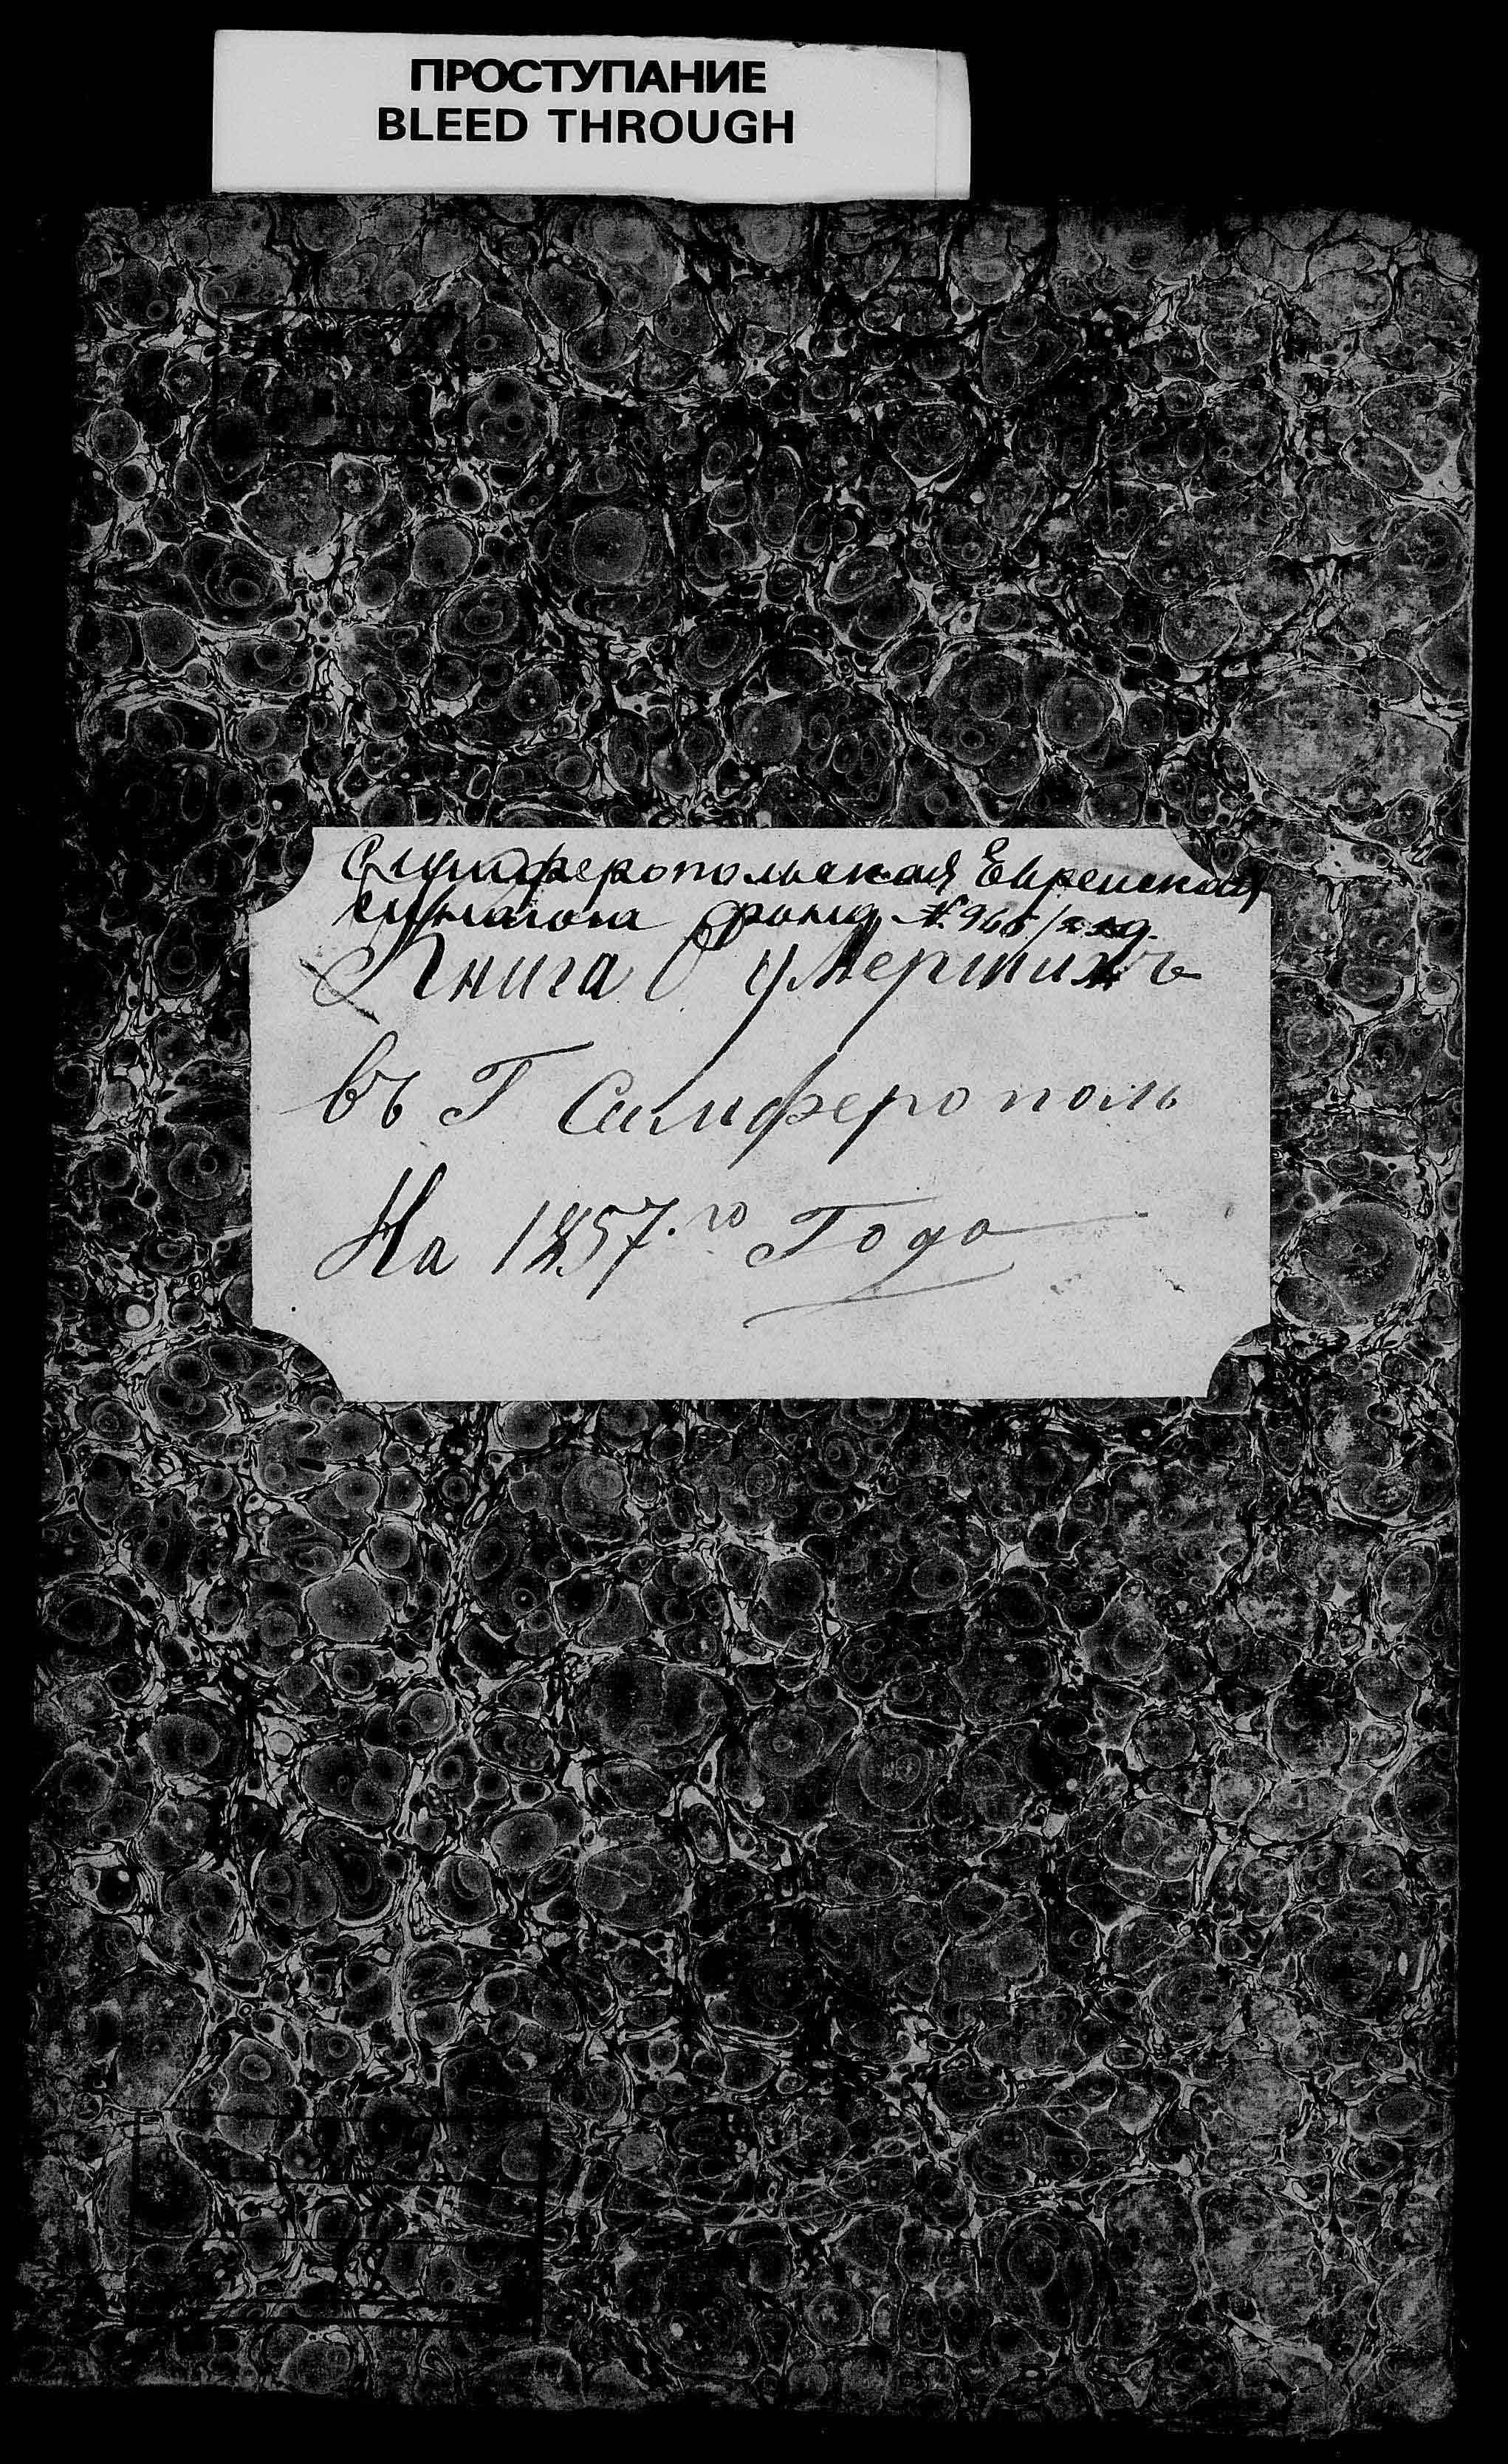 ПРОСТУПАНИЕ
BLEED THROUGH
Симферопольская Еврейская
синагога фонд №
Книга О умершихъ
въ Г Симферополь
На 1857.го Года